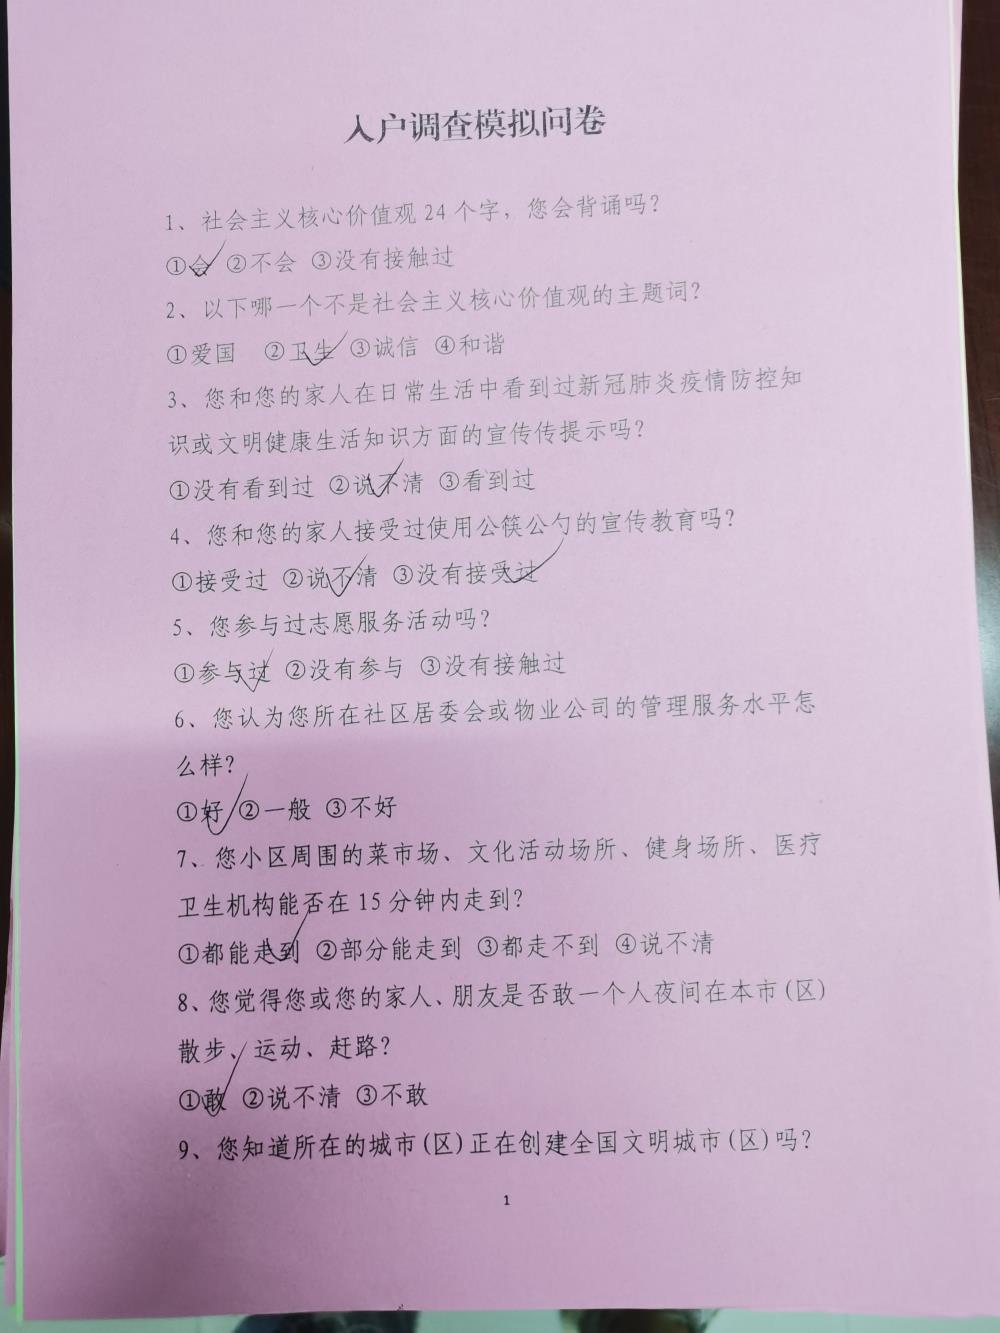 入户调查模拟问卷
1、社会主义核心价值观24个字，您会背诵吗？
①会 ②不会 ③没有接触过
2、以下哪一个不是社会主义核心价值观的主题词？
①爱国 ②卫生 ③诚信 ④和谐
3、您和您的家人在日常生活中看到过新冠肺炎疫情防控知
识或文明健康生活知识方面的宣传传提示吗？
①没有看到过 ②说不清 ③看到过
4、您和您的家人接受过使用公筷公勺的宣传教育吗？
①接受过 ②说不清 ③没有接受过
5、您参与过志愿服务活动吗？
①参与过 ②没有参与 ③没有接触过
6、您认为您所在社区居委会或物业公司的管理服务水平怎
么样？
①好 ②一般 ③不好
7、您小区周围的菜市场、文化活动场所、健身场所、医疗
卫生机构能否在15分钟内走到？
①都能走到 ②部分能走到 ③都走不到 ④说不清
8、您觉得您或您的家人、朋友是否敢一个人夜间在本市(区)
散步、运动、赶路？
①敢 ②说不清 ③不敢
9、您知道所在的城市(区)正在创建全国文明城市(区)吗？
1